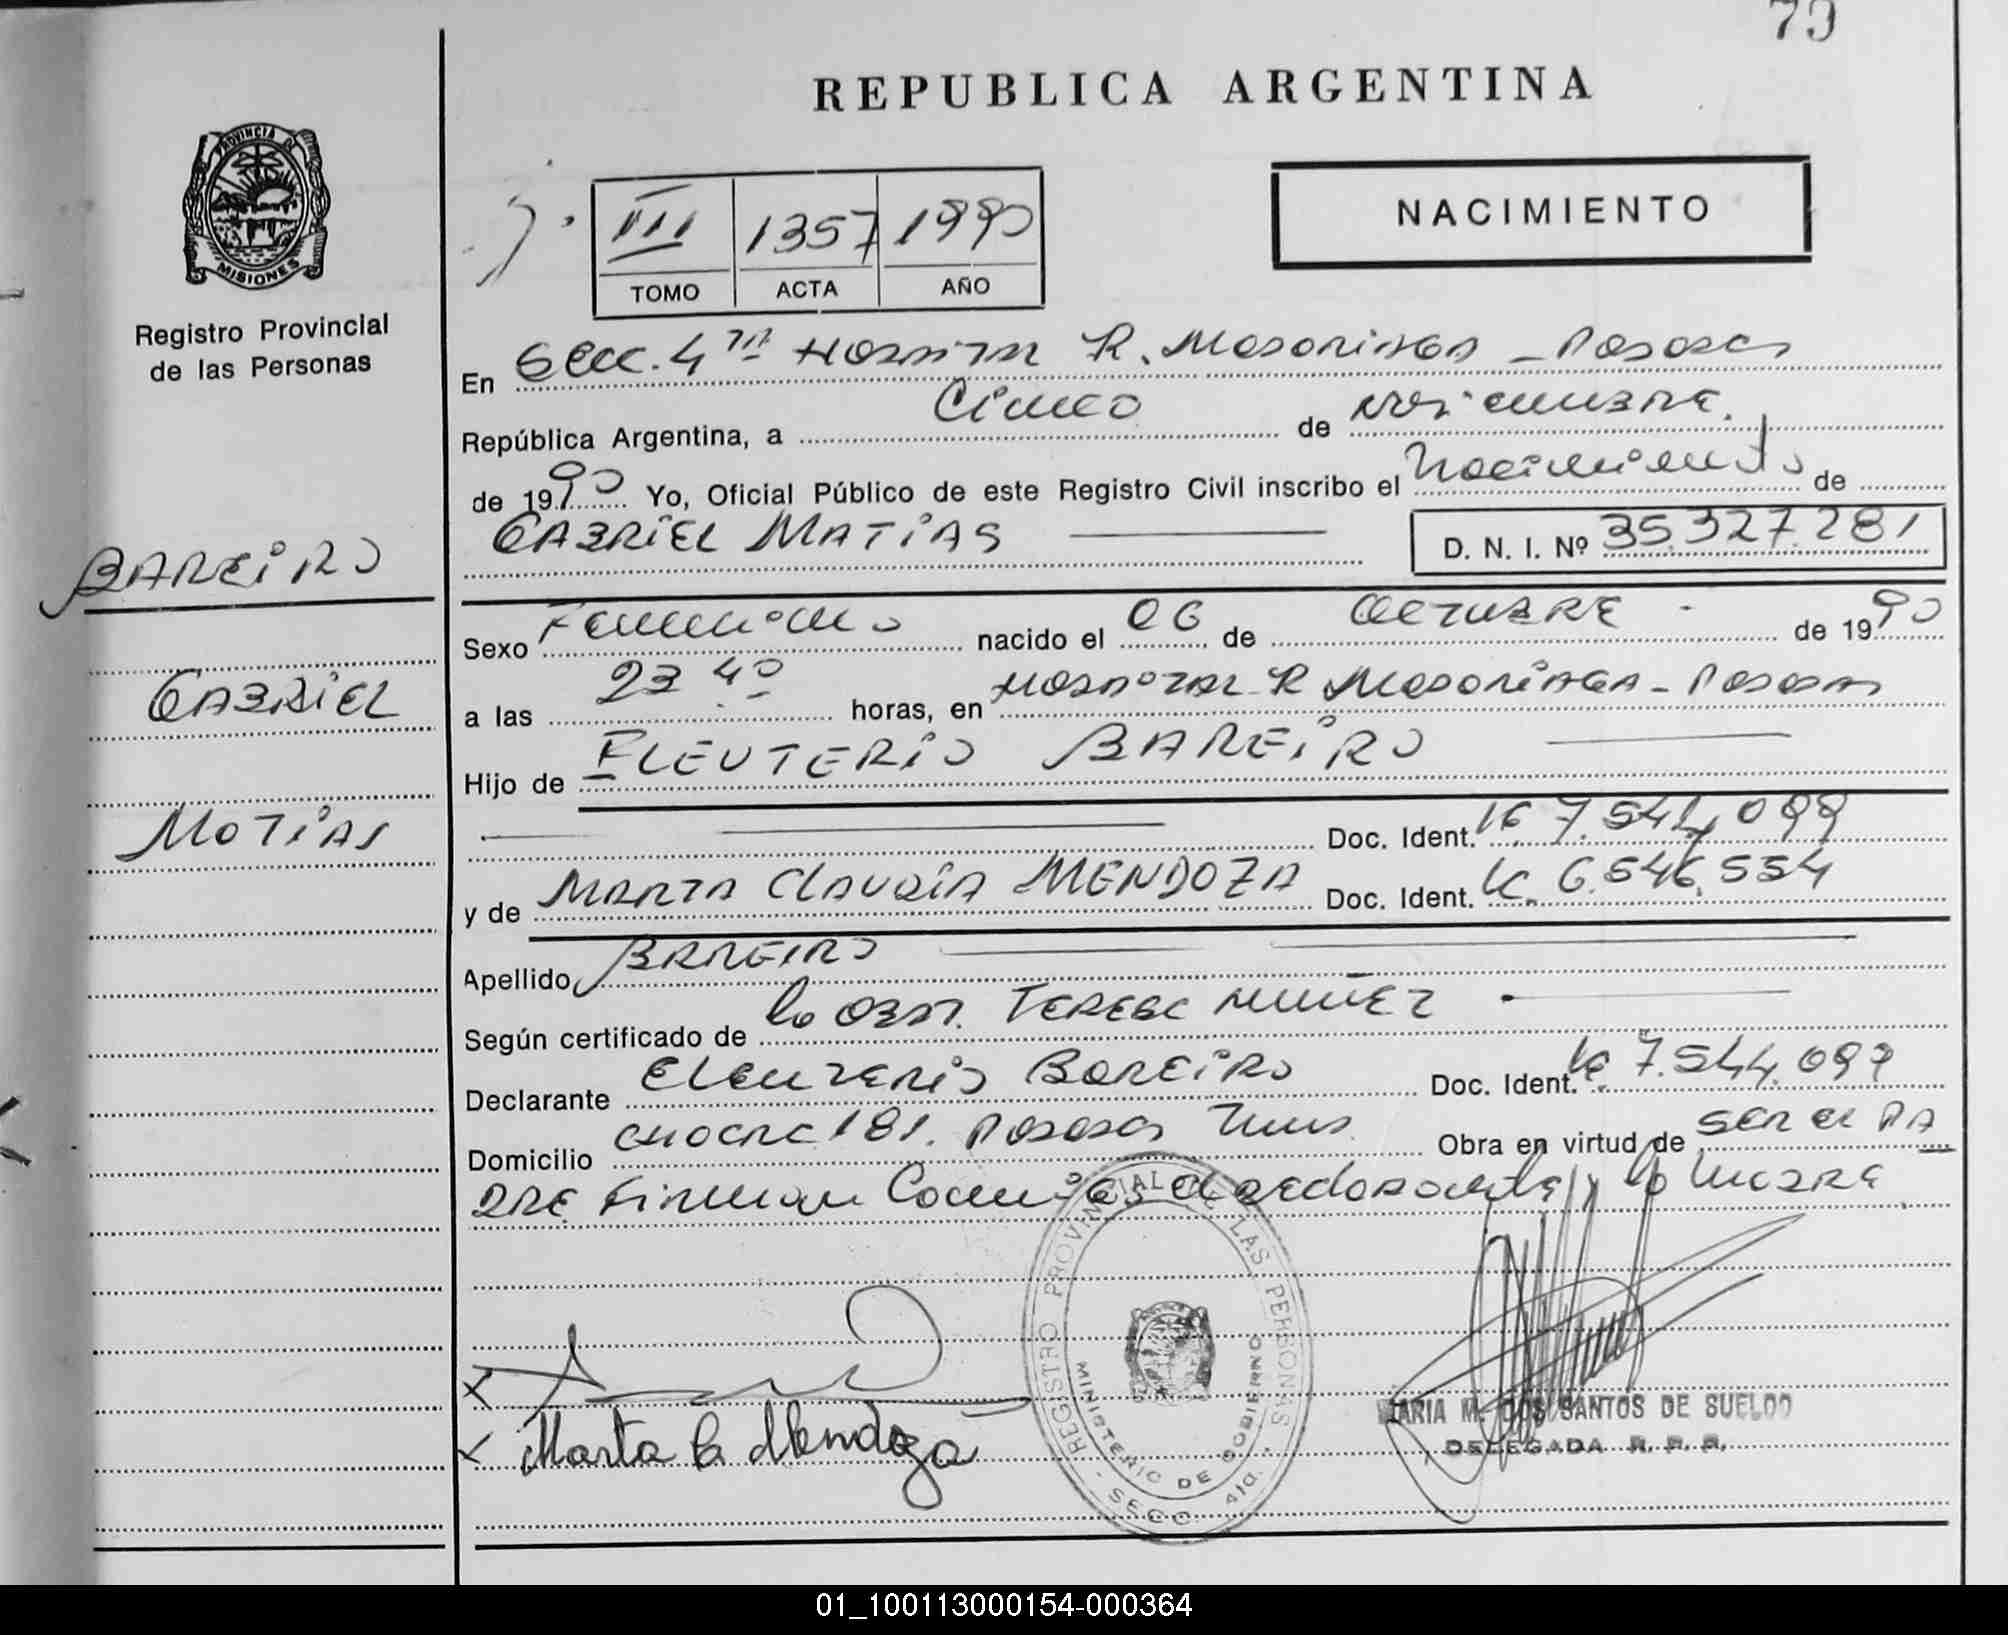 79
REPUBLICA ARGENTINA
PROVINCIA DE
MISIONES
NACIMIENTO
III 1357 1990
TOMO ACTA AÑO
Registro Provincial
de las Personas
En Secc. 4ta Hospital R. Madariaga - Posadas
República Argentina, a Cinco de Noviembre
de 1990 Yo, Oficial Público de este Registro Civil inscribo el Nacimiento de
GABRIEL MATIAS D. N. I. Nº 35.327.281
BAREIRO
Sexo Femenino nacido el 06 de OCTUBRE de 1990
GABRIEL
a las 23 40 horas, en Hospital R Madariaga - Posadas
Hijo de ELEUTERIO BAREIRO
MATIAS
Doc. Ident. 7.544.099
y de MARTA CLAUDIA MENDOZA Doc. Ident. 6.546.554
Apellido BAREIRO
Según certificado de la Obst. TERESA NUÑEZ
Declarante Eleuterio Bareiro Doc. Ident. 7.544.099
Domicilio 181. Posadas Obra en virtud de ser el PA
DRE Firman el y la Madre
REGISTRO PROVINCIAL DE LAS PERSONAS
MINISTERIO DE GOBIERNO
SECC. 4ta.
Marta C. Mendoza
MARIA M. DOS SANTOS DE SUELDO
DELEGADA R. P. P.
01_100113000154-000364